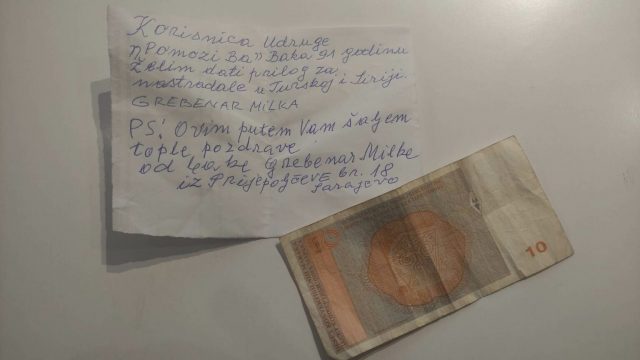 Korisnica Udruge
"Pomozi Ba" Baka 91 godinu
želim dati prilog za
nastradale u Turskoj i Siriji.
GREBENAR MILKA
PS! Ovim putem Vam šaljem
tople pozdrave
od bake Grebenar Milke
iz Prijepoljčeve br. 18
Sarajevo
10